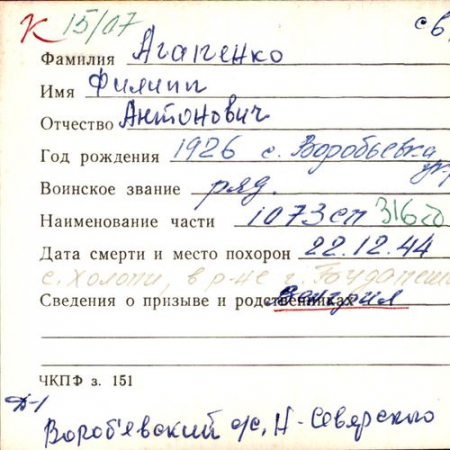 К 15/07 св
Фамилия Агапенко
Имя Филипп
Отчество Антонович
Год рождения 1926 с. Воробьевка
Воинское звание ряд.
Наименование части 1073сп 316сд
Дата смерти и место похорон 22.12.44
с. Холопи, в р-не г. Будапешт
Сведения о призыве и родственниках Венгрия
ЧКПФ з. 151
Д-1
Вороб'евский с/с, Н-Северского